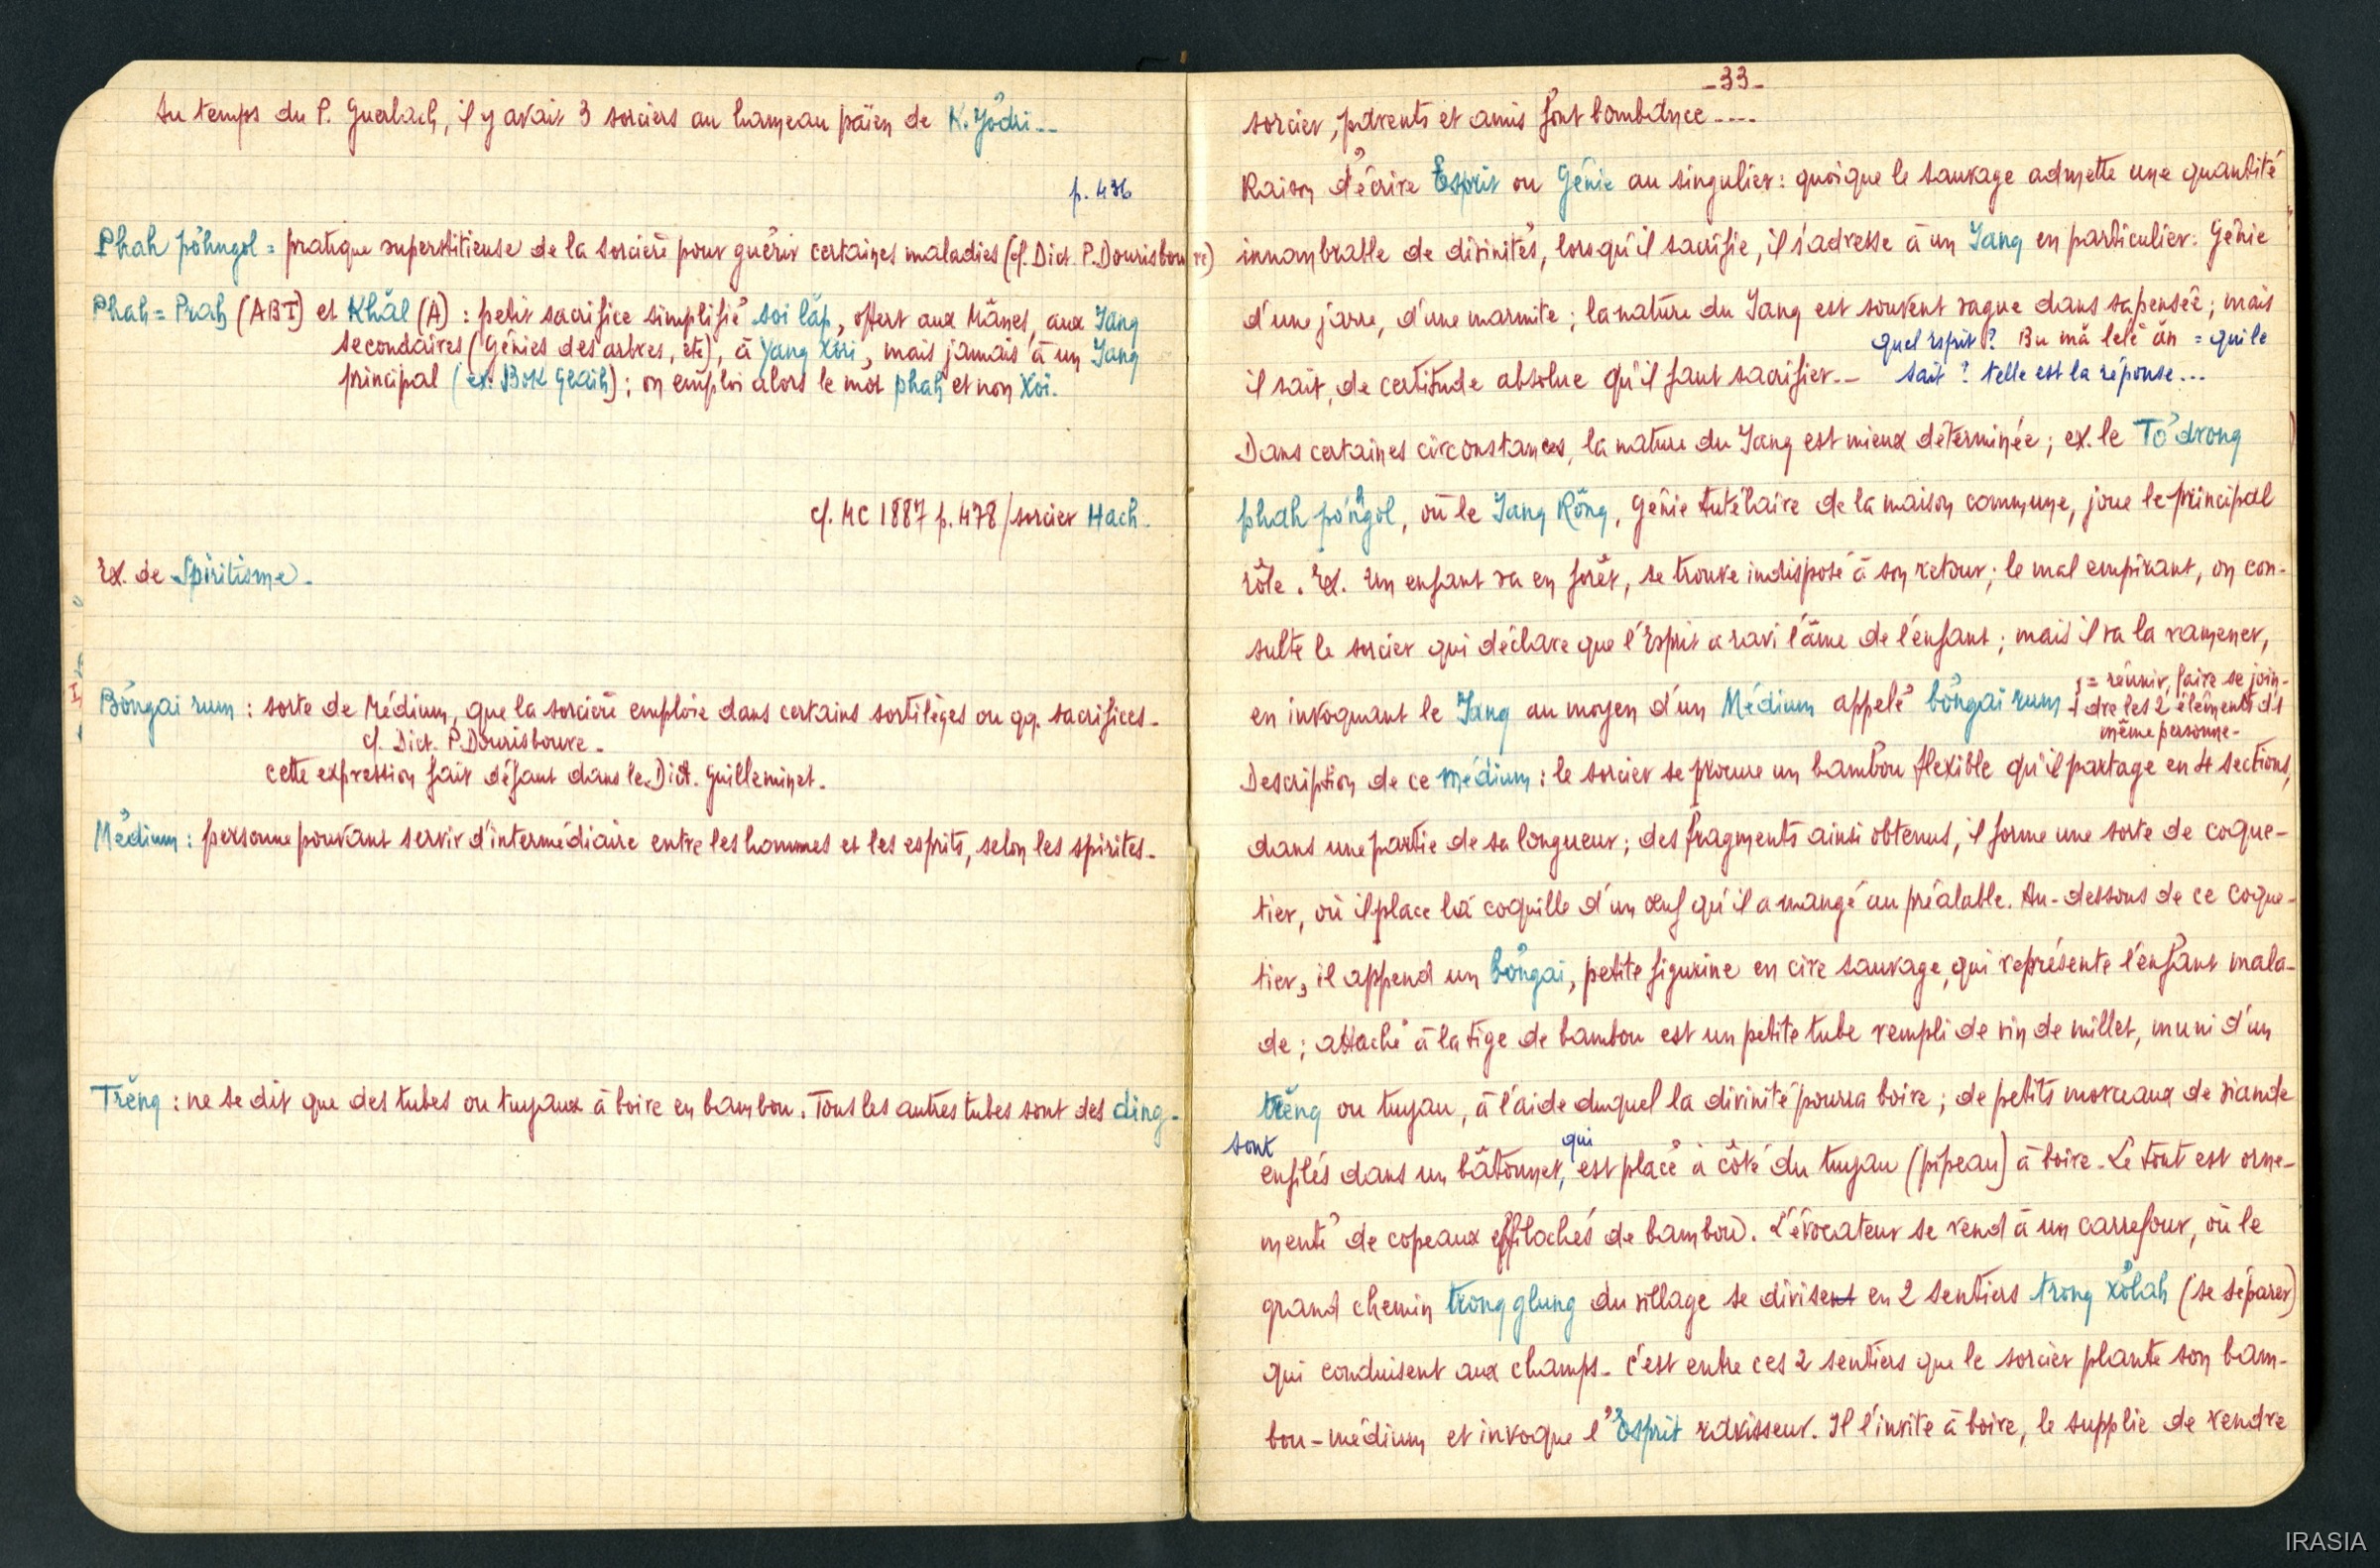 Au temps du P. Guerlach, il y avait 3 sorciers au hameau païen de K. Yŏdri --
p. 436
Phah pŏhngol = pratique superstitieuse de la sorcière pour guérir certaines maladies (cf. Dict. P. Dourisboure)
Phah = Prah (ABI) et Khăl (A) : petit sacrifice simplifié soi lăp, offert aux Mânes, aux Yang
secondaires (Génies des arbres, etc), à Yang Xŏri, mais jamais à un Yang
principal (ex. Bok Glaih) ; on emploi alors le mot phah et non Xoi.
cf. MC 1887 p. 478 / sorcier Hach.
Ex. de Spiritisme.
Bŏngai rum : sorte de Médium, que la sorcière emploie dans certains sortilèges ou qq. sacrifices.
cf. Dict. P. Dourisboure.
cette expression fait défaut dans le Dict. Guilleminet.
Médium : personne pouvant servir d'intermédiaire entre les hommes et les esprits, selon les spirites.
Trĕng : ne se dit que des tubes ou tuyaux à boire en bambou. Tous les autres tubes sont des ding.
- 33 -
sorcier, parents et amis font bombance ----
Raison d'écrire Esprit ou Génie au singulier : quoique le sauvage admette une quantité
innombrable de divinités, lorsqu'il sacrifie, il s'adresse à un Yang en particulier : Génie
d'une jarre, d'une marmite ; la nature du Yang est souvent vague dans sa pensée ; mais
quel esprit ? Bu mă lelĕ ăn = qui le
il sait, de certitude absolue qu'il faut sacrifier. -- sait ? telle est la réponse...
Dans certaines circonstances, la nature du Yang est mieux déterminée ; ex. le Tŏdrong
phah pŏhngol, où le Yang Rŏng, Génie tutélaire de la maison commune, joue le principal
rôle. Ex. Un enfant va en forêt, se trouve indisposé à son retour ; le mal empirant, on con-
sulte le sorcier qui déclare que l'Esprit a ravi l'âme de l'enfant ; mais il va la ramener,
en invoquant le Yang au moyen d'un Médium appelé bŏngai rum
= réunir, faire se join-
dre les 2 éléments d'1
même personne -
Description de ce médium : le sorcier se procure un bambou flexible qu'il partage en 4 sections,
dans une partie de sa longueur ; des fragments ainsi obtenus, il forme une sorte de coque-
tier, où il place la coquille d'un œuf qu'il a mangé au préalable. Au-dessous de ce coque-
tier, il append un bŏngai, petite figurine en cire sauvage, qui représente l'enfant mala-
de ; attaché à la tige de bambou est un petite tube rempli de vin de millet, muni d'un
trĕng ou tuyau, à l'aide duquel la divinité pourra boire ; de petits morceaux de viande
sont enfilés dans un bâtonnet, qui est placé à côté du tuyau (pipeau) à boire. Le tout est orne-
menté de copeaux effilochés de bambou. L'évocateur se rend à un carrefour, où le
grand chemin trong glung du village se divisent en 2 sentiers trong xŏlah (se séparer)
qui conduisent aux champs. C'est entre ces 2 sentiers que le sorcier plante son bam-
bou-médium et invoque l'Esprit ravisseur. Il l'invite à boire, le supplie de rendre
IRASIA